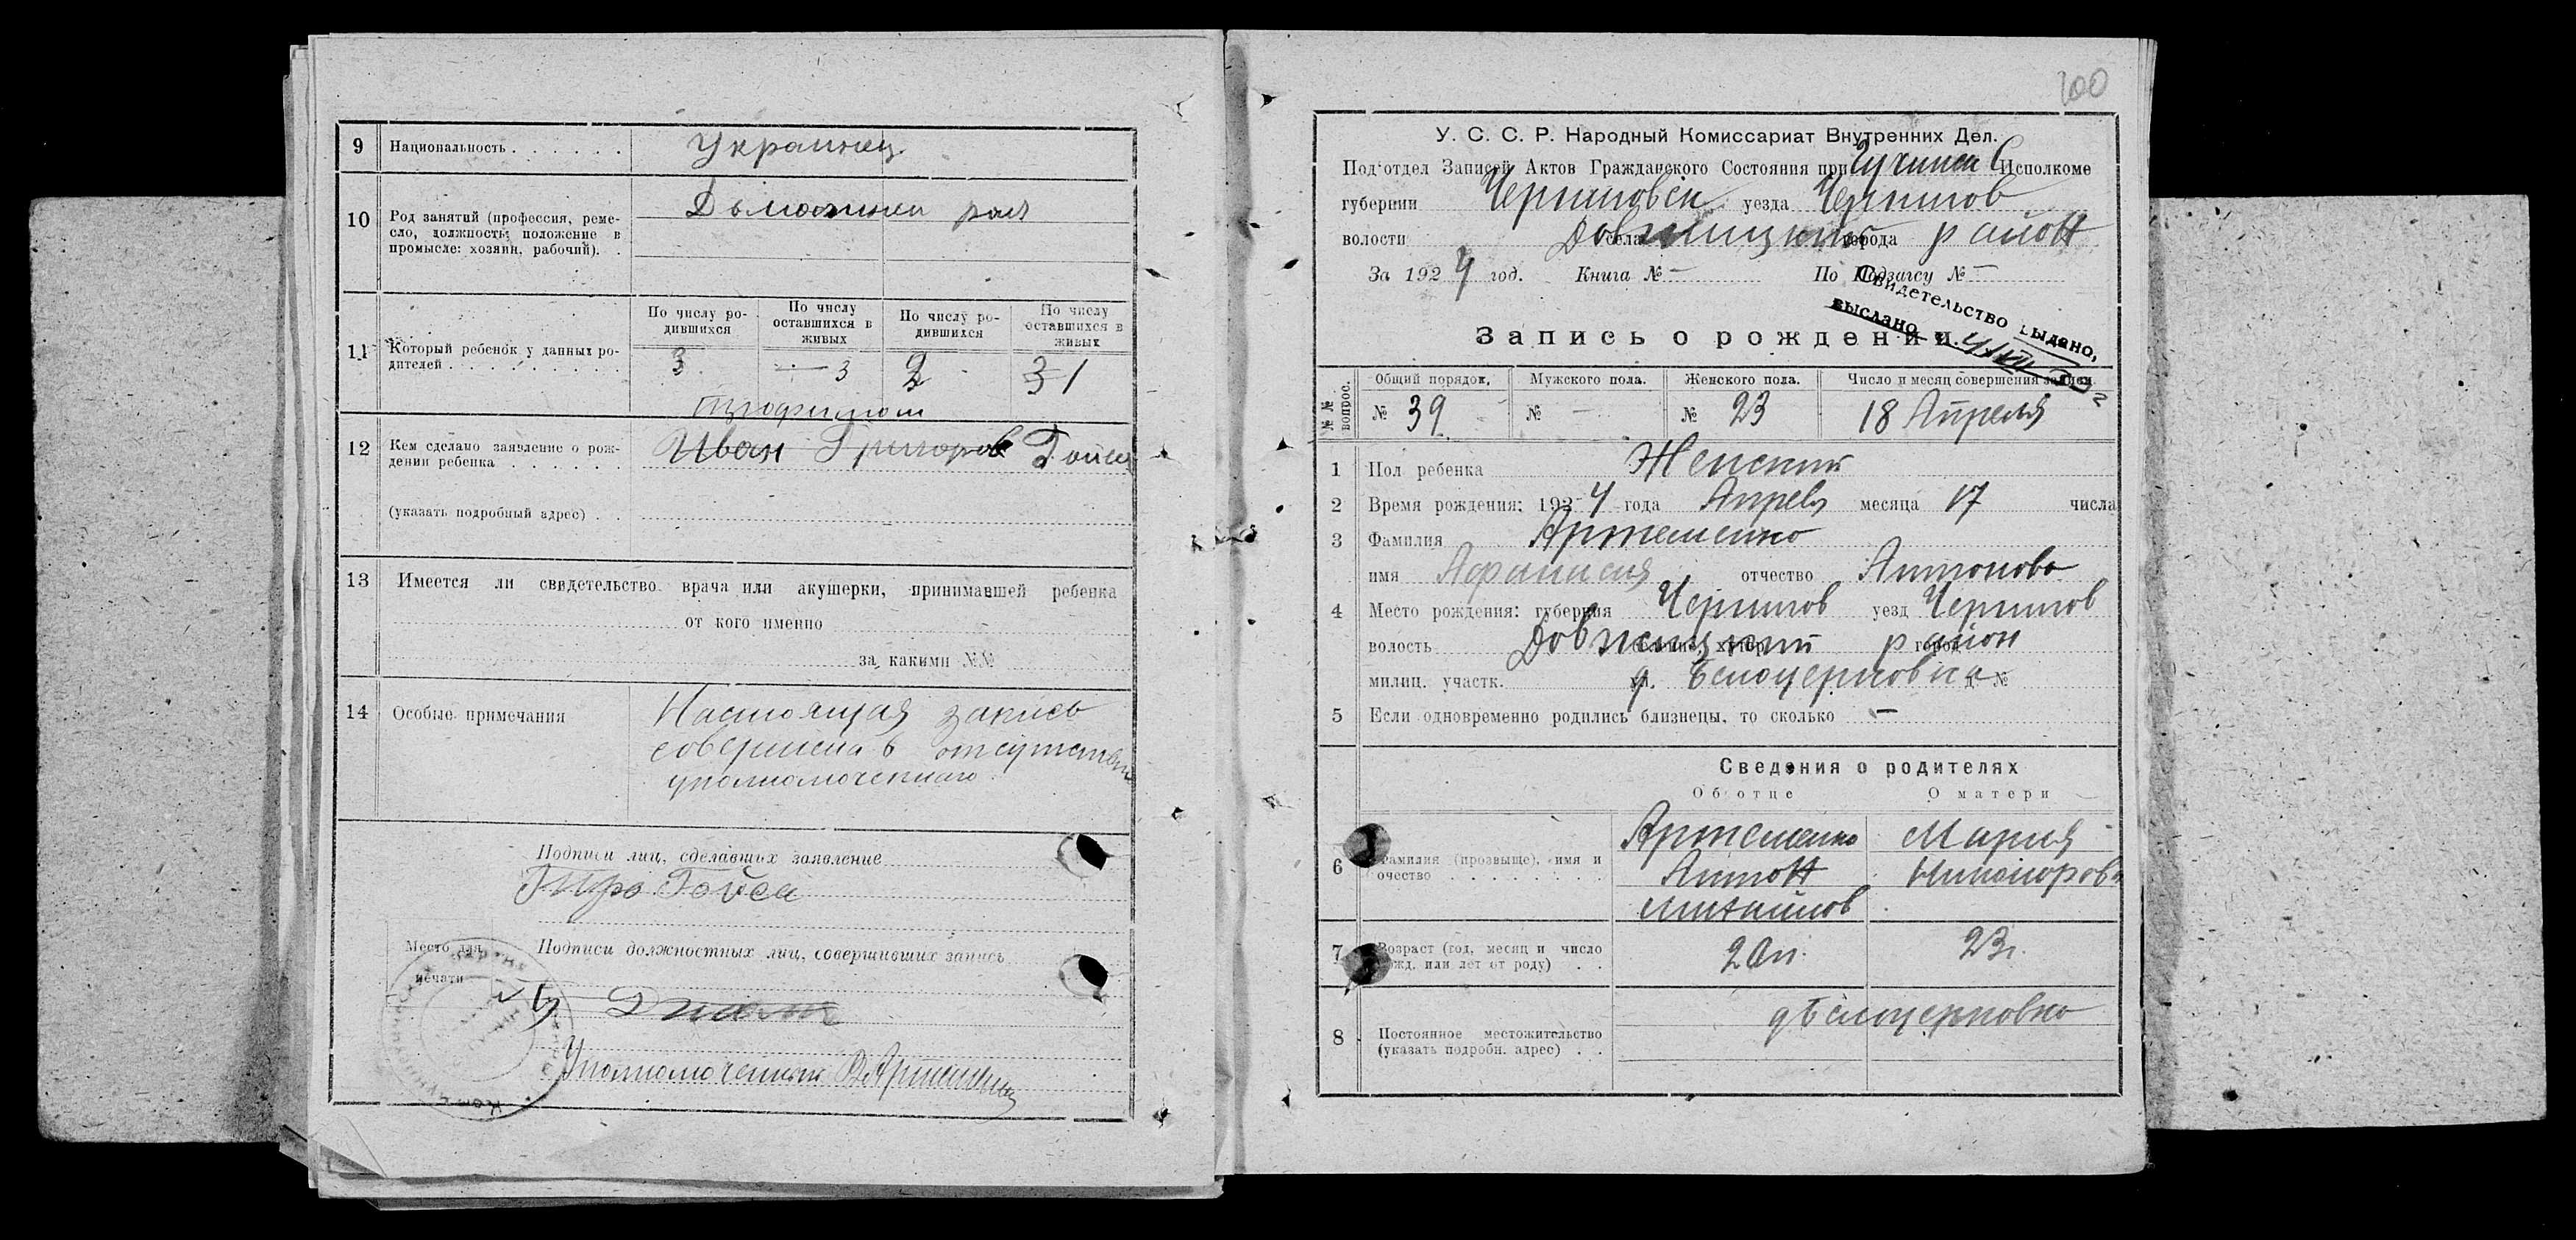 9 Национальность . . . . . . Украинец
10 Род занятий (профессия, реме-
сло, должность, положение в
промысле: хозяин, рабочий). .
По числу ро-
дившихся
По числу
оставшихся в
живых
По числу ро-
дившихся
По числу
оставшихся в
живых
11 Который ребенок у данных ро-
дителей . . . . . . . . . 3 — 3 2 3 1
12 Кем сделано заявление о рож-
дении ребенка . . . . . . Иван Григоров Гойса
(указать подробный адрес) . .
13 Имеется ли свидетельство врача или акушерки, принимавшей ребенка
от кого именно
за какими №№
14 Особые примечания Настоящая запись
совершена в отсутствии
уполномоченного
Подписи лиц, сделавших заявление
Гойса
Место для
печати
Подписи должностных лиц, совершивших запись
Уполномоченный В Артеменко
100
У. С. С. Р. Народный Комиссариат Внутренних Дел.
Под'отдел Записей Актов Гражданского Состояния при С Исполкоме
губернии Черниговск уезда Чернигов
волости села города район
За 1924 год. Книга № — По Подзагсу № —
Свидетельство выдано,
выслано
Запись о рождении
№№ вопрос.
Общий порядок. Мужского пола. Женского пола. Число и месяц совершения записи.
№ 39 № — № 23 18 Апреля
1 Пол ребенка Женский
2 Время рождения: 1924 года Апреля месяца 17 числа
3 Фамилия Артеменко
имя Афанасия отчество Антонова
4 Место рождения: губерния Чернигов уезд Чернигов
волость хутор город район
милиц. участк. ул. д. Белоцерковка д. №
5 Если одновременно родились близнецы, то сколько —
Сведения о родителях
Об отце О матери
6 Фамилия (прозвыще), имя и
очество . . . . . . . .
Артеменко
Антон
Михайлов
Мария
Никифорова
7 Возраст (год, месяц и число
рожд. или лет от роду) . . 23г.
8 Постоянное местожительство
(указать подробн. адрес) . . д Белоцерковка